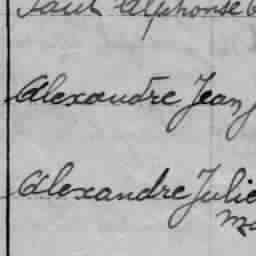 Paul Alphonse
Alexandre Jean
Alexandre Julie